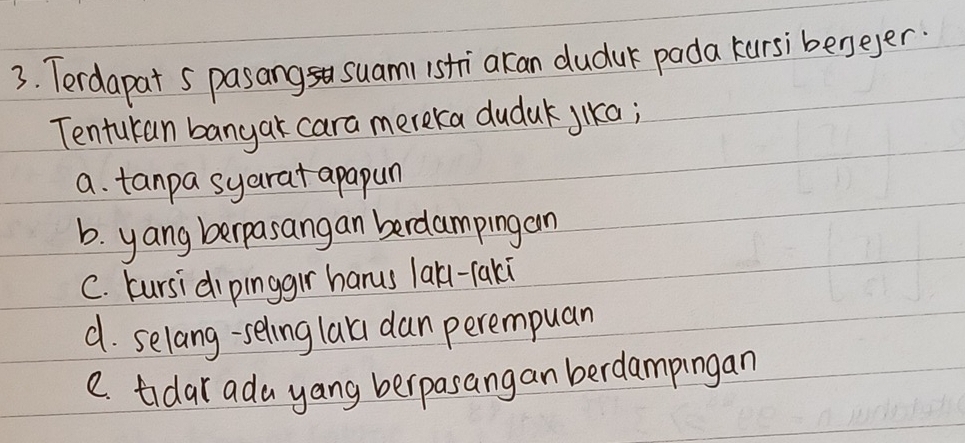 3. Terdapat 5 pasang suami istri akan duduk pada kursi berjejer.
Tentukan banyak cara mereka duduk jika;
a. tanpa syarat apapun
b. yang berpasangan berdampingan
c. kursi dipinggir harus laki-laki
d. selang-seling laki dan perempuan
e. tidak ada yang berpasangan berdampingan